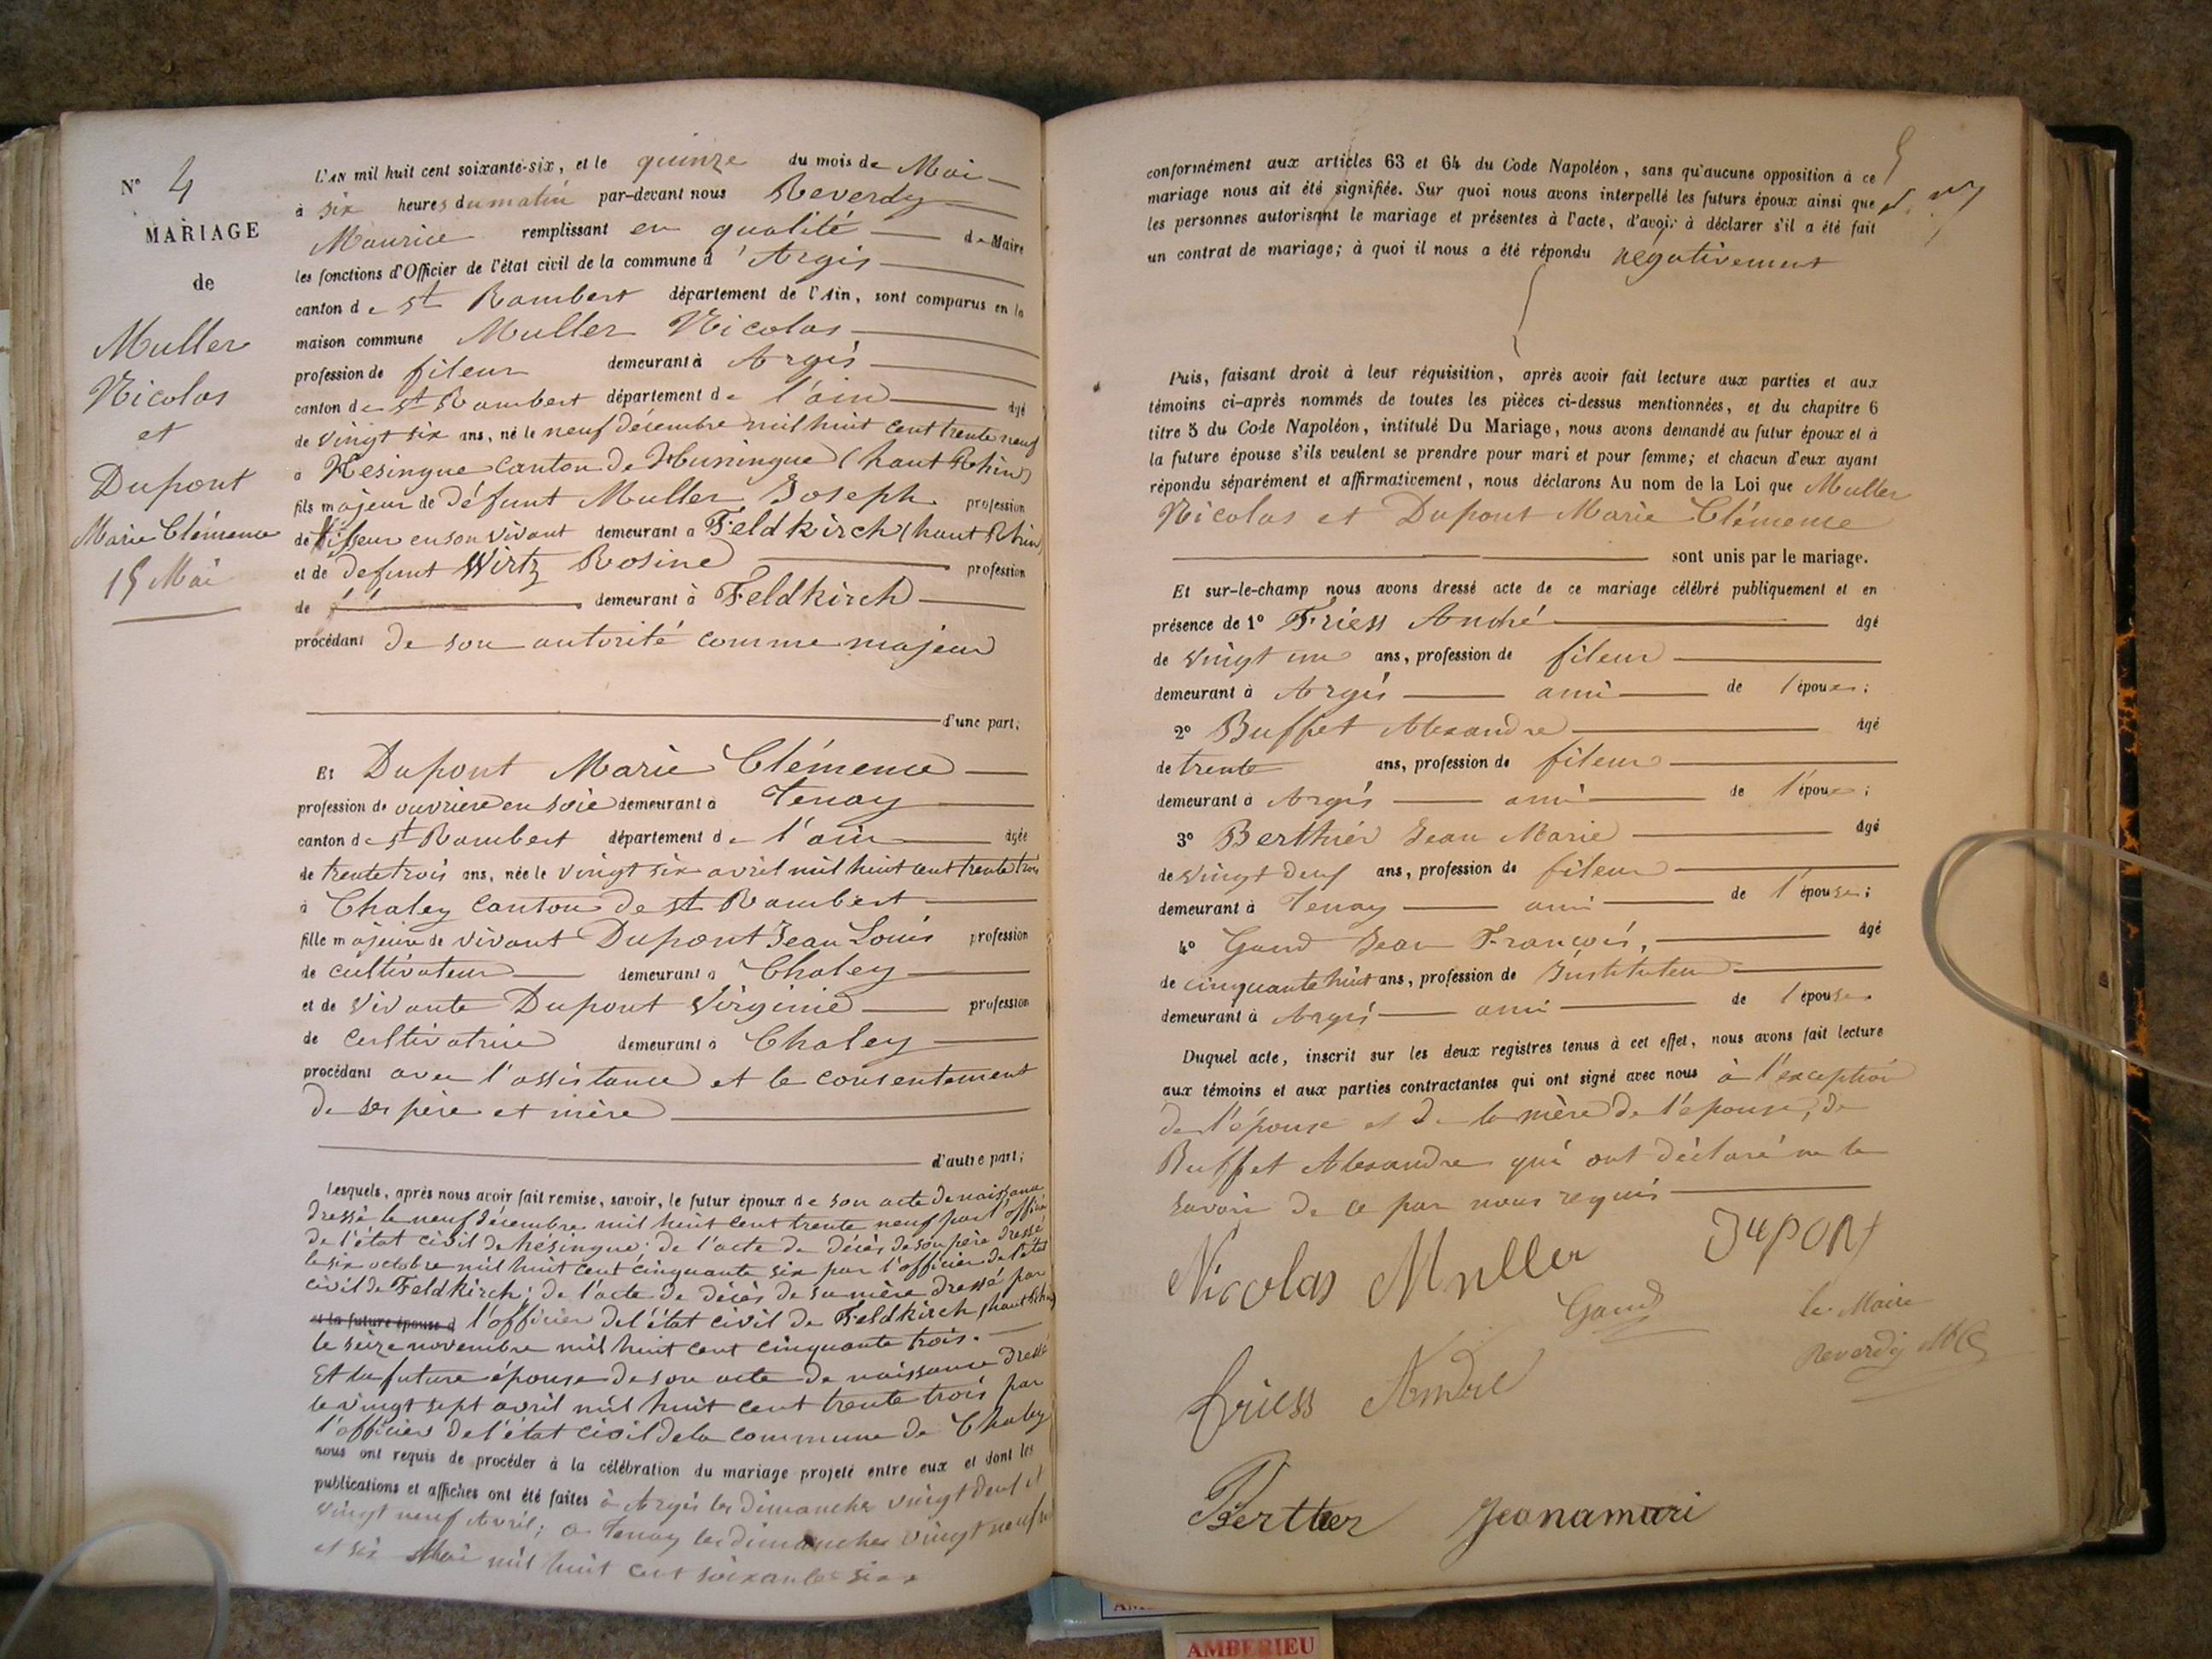 N° 4
MARIAGE
de
Muller
Nicolas
et
Dupont
Marie Clémence
15 Mai
L'AN mil huit cent soixante-six, et le quinze du mois de Mai
à six heures du matin par-devant nous Reverdy
Maurice remplissant en qualité de Maire
les fonctions d'Officier de l'état civil de la commune d'Argis
canton de St Rambert département de l'Ain, sont comparus en la
maison commune Muller Nicolas
profession de fileur demeurant à Argis
canton de St Rambert département de l'ain âgé
de vingt six ans, né le neuf décembre mil huit cent trente neuf
à Hesingue canton de Huningue (haut Rhin)
fils majeur de défunt Muller Joseph profession
de tisseur en son vivant demeurant à Feldkirch (haut Rhin)
et de defunt Wirtz Rosine profession
de demeurant à Feldkirch
procédant de son autorité comme majeur
d'une part;
Et Dupont Marie Clémence
profession de ouvrière en soie demeurant à Tenay
canton de St Rambert département de l'ain âgée
de trente trois ans, née le vingt six avril mil huit cent trente trois
à Chaley canton de St Rambert
fille majeure de vivant Dupont Jean Louis profession
de cultivateur demeurant à Chaley
et de vivante Dupont Virginie profession
de cultivatrice demeurant à Chaley
procédant avec l'assistance et le consentement
de ses père et mère
d'autre part;
Lesquels, après nous avoir fait remise, savoir, le futur époux de son acte de naissance
dressé le neuf décembre mil huit cent trente neuf par l'officier
de l'état civil de hésingue; de l'acte de décès de son père dressé
le six octobre mil huit cent cinquante six par l'officier de l'état
civil de Feldkirch; de l'acte de décès de sa mère dressé par
et la future épouse d l'officier de l'état civil de Feldkirch (haut Rhin)
le seize novembre mil huit cent cinquante trois.
Et la future épouse de son acte de naissance dressé
le vingt sept avril mil huit cent trente trois par
l'officier de l'état civil de la commune de Chaley
nous ont requis de procéder à la célébration du mariage projeté entre eux et dont les
publications et affiches ont été faites à Argis les dimanches vingt deux et
vingt neuf Avril; à Tenay les dimanches vingt neuf avril
et six Mai mil huit cent soixante six
conformément aux articles 63 et 64 du Code Napoléon, sans qu'aucune opposition à ce
mariage nous ait été signifiée. Sur quoi nous avons interpellé les futurs époux ainsi que
les personnes autorisant le mariage et présentes à l'acte, d'avoir à déclarer s'il a été fait
un contrat de mariage; à quoi il nous a été répondu négativement
Puis, faisant droit à leur réquisition, après avoir fait lecture aux parties et aux
témoins ci-après nommés de toutes les pièces ci-dessus mentionnées, et du chapitre 6
titre 5 du Code Napoléon, intitulé Du Mariage, nous avons demandé au futur époux et à
la future épouse s'ils veulent se prendre pour mari et pour femme; et chacun d'eux ayant
répondu séparément et affirmativement, nous déclarons Au nom de la Loi que Muller
Nicolas et Dupont Marie Clémence
sont unis par le mariage.
Et sur-le-champ nous avons dressé acte de ce mariage célébré publiquement et en
présence de 1° Friess André âgé
de vingt un ans, profession de fileur
demeurant à Argis ami de l'époux;
2° Buffet Alexandre âgé
de trente ans, profession de fileur
demeurant à Argis ami de l'époux;
3° Berthier Jean Marie âgé
de vingt deux ans, profession de fileur
demeurant à Tenay ami de l'épouse;
4° Gand Jean François, âgé
de cinquante huit ans, profession de Instituteur
demeurant à Argis ami de l'épouse
Duquel acte, inscrit sur les deux registres tenus à cet effet, nous avons fait lecture
aux témoins et aux parties contractantes qui ont signé avec nous à l'exception
de l'épouse et de la mère de l'épouse, de
Buffet Alexandre qui ont déclaré ne le
savoir de ce par nous requis
Nicolas Muller Dupont
Gand le Maire
Reverdy
friess Andre
Berttier Jeanamari
AMBERIEU